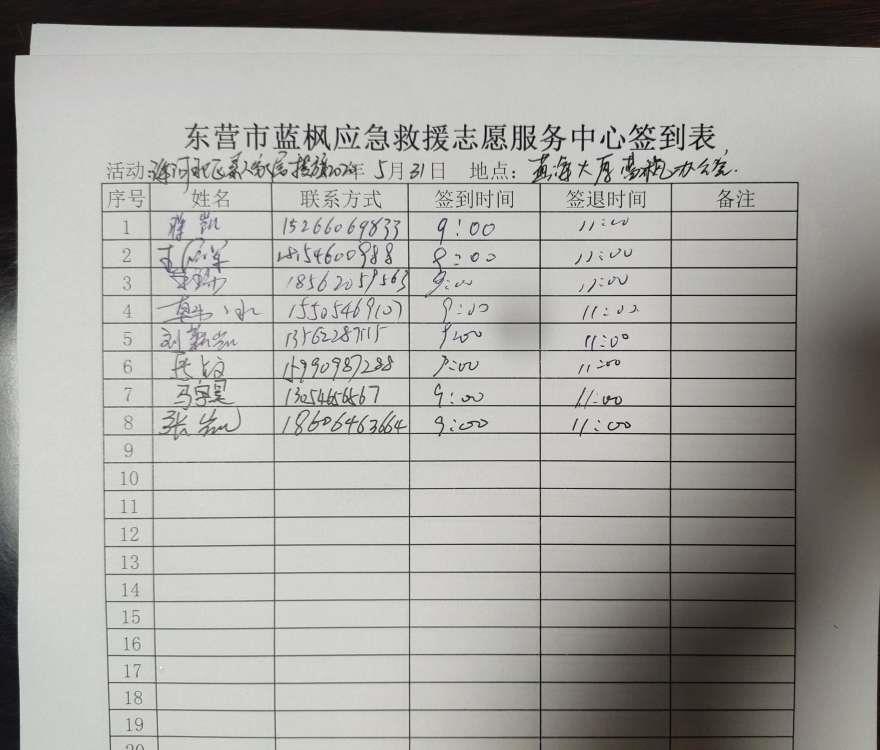 东营市蓝枫应急救援志愿服务中心签到表
活动: 年 5月31日 地点: 蓝海大厦蓝枫办公室.
序号 姓名 联系方式 签到时间 签退时间 备注
1 15266069833 9:00 11:00
2 18154600988 9:00 11:00
3 18562059563 9:00 11:00
4 15505469107 9:00 11:00
5 刘凯 13562287115 9:00 11:00
6 15990987288 9:00 11:00
7 马字昊 13054656567 9:00 11:00
8 张岚 18606463664 9:00 11:00
9
10
11
12
13
14
15
16
17
18
19
20